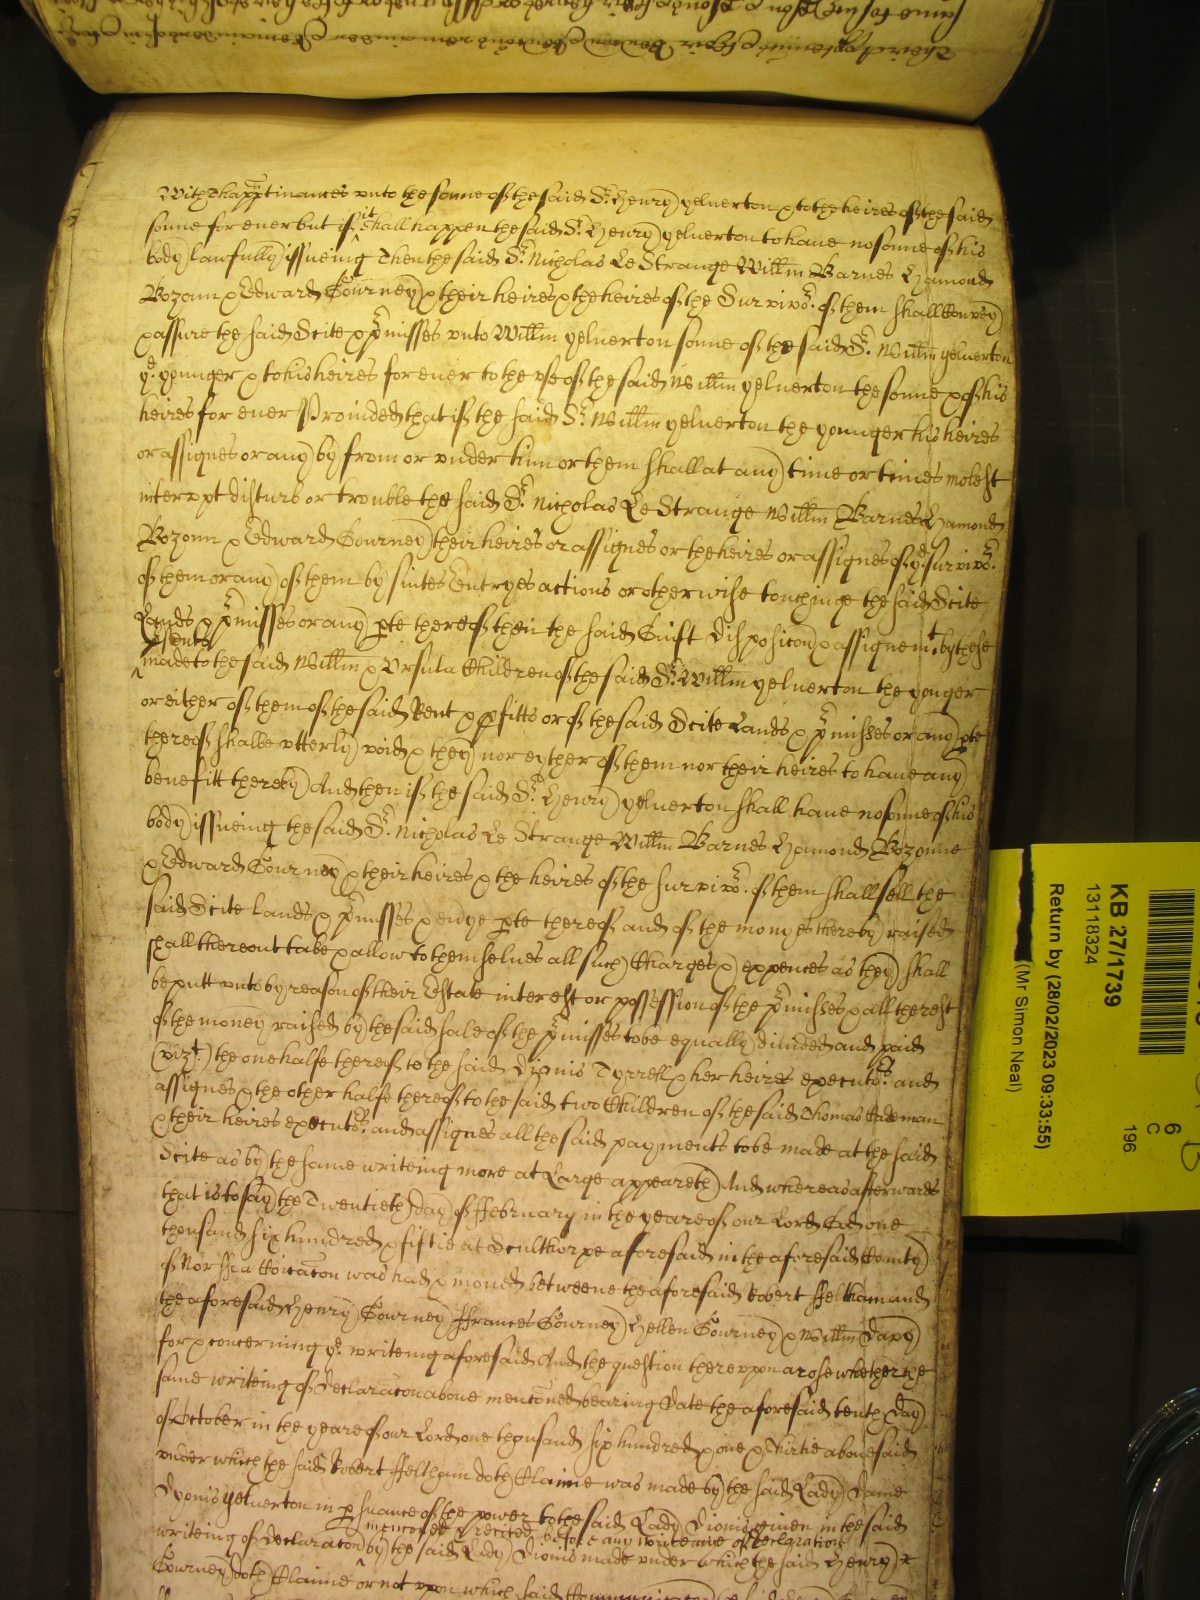 With thapp'tinances unto the sonne of the said Sr. Henry yelverton & to the heires of the said
sonne for ever but if it shall happen the said Sr. Henry yelverton to have no sonne of his
body lawfully issueing Then the said Sr. Nicholas Le Strange Willm Barnes Hamond
Bozoun & Edward Gourney & their heires & the heires of the Survivor. of them shall Convey
& assure the said Scite & p'misses unto Willm yelverton sonne of the said Sr. Willm yelverton
ye. younger & to his heires for ever to the use of the said Willm yelverton the sonne & of his
heires for ever Provided that if the said Sr. Willm yelverton the younger his heires
or assignes or any by from or under him or them shall at any time or times molest
interupt disturb or trouble the said Sr. Nicholas Le Strange Willm Barnes Hamond
Bozoun & Edward Gourney their heires or assignes or the heires or assignes of ye. survivor.
of them or any of them by suites Entryes actions or otherwise touchinge the said Scite
Lands & p'misses or any pte thereof then the said Guift Disposicon & assignemt. by these
p'sents
made to the said Willm & Ursula Children of the said Sr. Willm yelverton the yonger
or either of them of the said Rent & pfitts or of the said Scite Lands & p'misses or any pte
thereof shalbe utterly void & they nor eyther of them nor their heires to have any
benefitt thereby And then if the said Sr. Henry yelverton shall have no sonne of his
body issueing the said Sr. Nicholas Le Strange Willm Barnes Hamond Bozoune
& Edward Gourney & their heires & the heires of the survivor. of them shall sell the
said Scite lands & p'misses & every pte thereof and of the monyes thereby raised
shall thereout take & allow to themselves all such Charges & expences as they shall
be putt unto by reason of their Estate interest or possession of the p'misses & all the rest
of the money raised by the said sale of the p'misses to be equally divided and paid
(vizt.) the one halfe thereof to the said Dionis Tyrrell & her heires executors. and
assignes & the other halfe thereof to the said two Children of the said Thomas
& their heires executors. and assignes all the said payments to be made at the said
Scite as by the same writeing more at Large appeareth And whereas afterwards
that is to say the Twentieth Day of ffebruary in the yeare of our Lord God one
thousand six hundred & fiftie at Sculthorpe aforesaid in the aforesaid County
of Norff a Coicacon was had & moved betweene the aforesaid Robert ffeltham and
the aforesaid Henry Gourney ffrances Gourney Hellen Gourney & Willm Davy
for & concerning ye. writeing aforesaid And the question thereupon arose whether the
same writeing of Declaracon above menconed bearing Date the aforesaid tenth Day
of October in the yeare of our Lord one thousand six hundred & one & thirtie abovesaid
under which the said Robert ffeltham doth Claime was made by the said Lady Dame
Dyonis yelverton in psuance of the power to the said Lady Dionis given in the said
menconed & recited before any writeing of Declaration
writeing of Declaracon by the said Lady Dionis made under which the said Henry
Gourney doth Claime or not upon which said
KB 27/1739
13118324
Return by (28/02/2023 09:33:55)
(Mr Simon Neal)
6
C
196